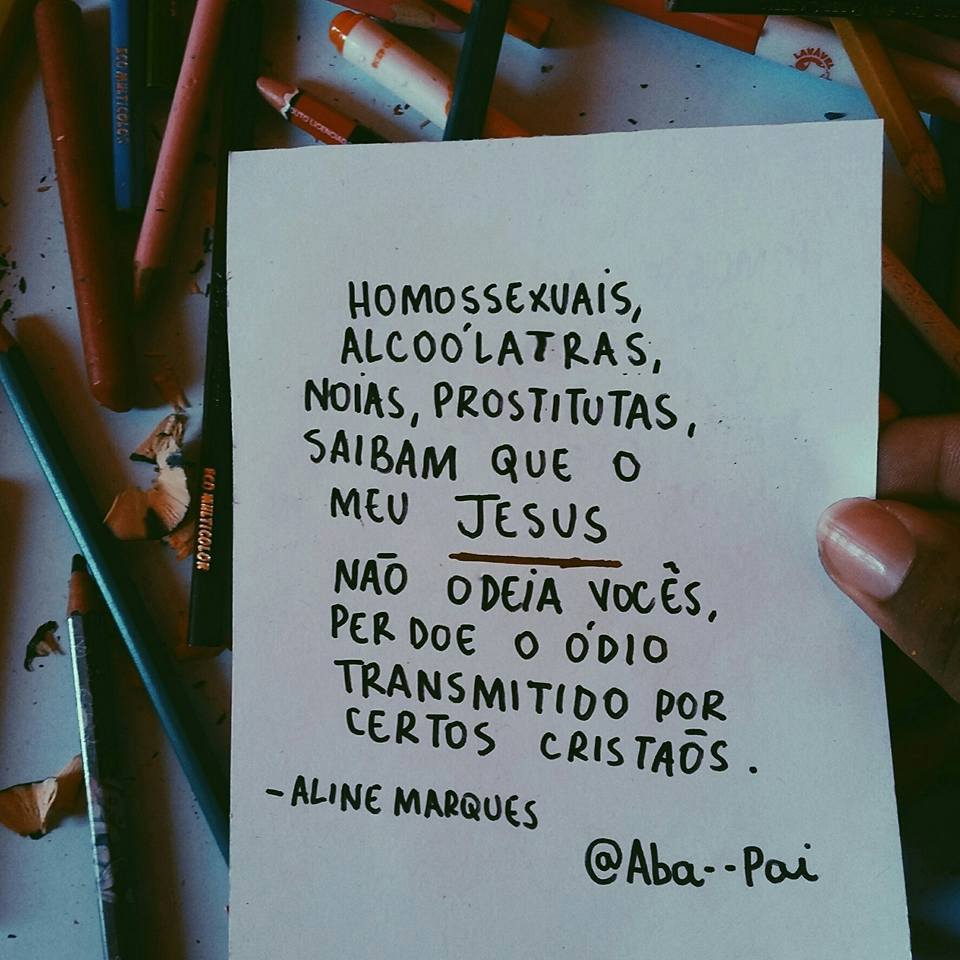 ECO MULTICOLOR
LAVÁVEL
HOMOSSEXUAIS,
ALCOÓLATRAS,
NOIAS, PROSTITUTAS,
SAIBAM QUE O
MEU JESUS
NÃO ODEIA VOCÊS,
PERDOE O ÓDIO
TRANSMITIDO POR
CERTOS CRISTAÕS.
- ALINE MARQUES
@Aba--Pai
ECO MULTICOLOR